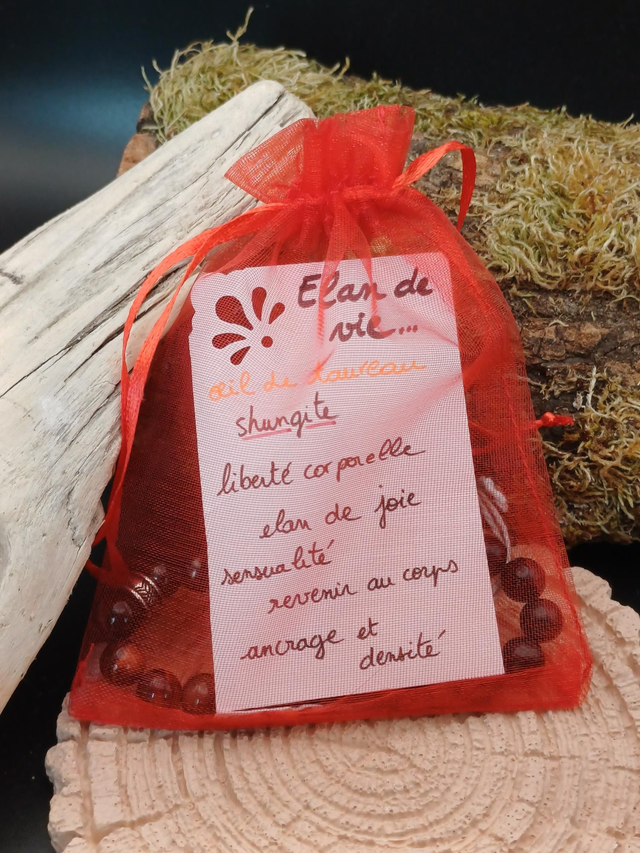 Elan de
vie...
œil de taureau
shungite
liberté corporelle
elan de joie
sensualité
revenir au corps
ancrage et
densité